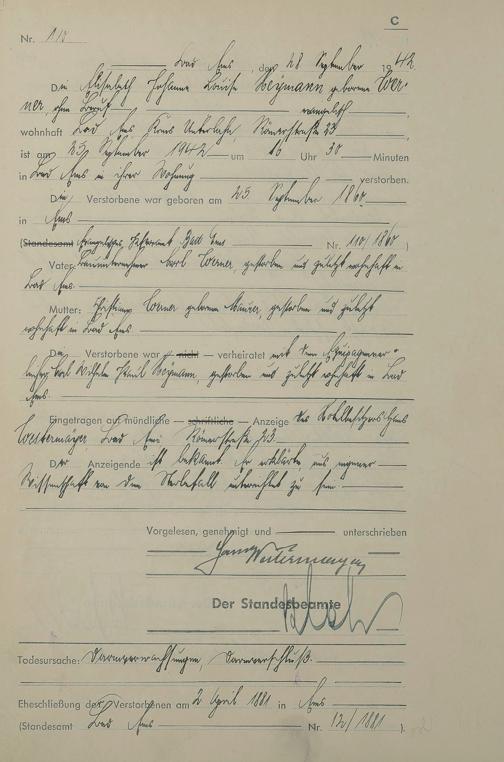 C
Nr. 113
Bad Ems, den 28 September 1942
Die Elisabeth Johanna Louise Weymann geborene Wer-
ner ohne Beruf evangelisch
wohnhaft Bad Ems Kreis Unterlahn, Römerstraße 23
ist am 25 September 1942 um 16 Uhr 30 Minuten
in Bad Ems in ihrer Wohnung verstorben.
Die Verstorbene war geboren am 25 September 1860
in Ems
(Standesamt Evangelisches Pfarramt Bad Ems Nr. 110/1860)
Vater: Karl Werner, gestorben und zuletzt wohnhaft in
Bad Ems
Mutter: Werner geborene Maurer, gestorben und zuletzt
wohnhaft in Bad Ems
Die Verstorbene war – nicht – verheiratet mit dem
Karl Wilhelm Weymann, gestorben und zuletzt wohnhaft in Bad
Ems.
Eingetragen auf mündliche – schriftliche – Anzeige des Hotelbesitzers Hans
Westermayer Bad Ems Römerstraße 23
Der Anzeigende ist bekannt. Er erklärte, aus eigener
Wissenschaft von dem Sterbefall unterrichtet zu sein.
Vorgelesen, genehmigt und unterschrieben
Hans Westermayer
Der Standesbeamte
Todesursache: Darmverwachsungen, Darmverschluß.
Eheschließung der Verstorbenen am 2 April 1881 in Ems
(Standesamt Bad Ems Nr. 12/1881).